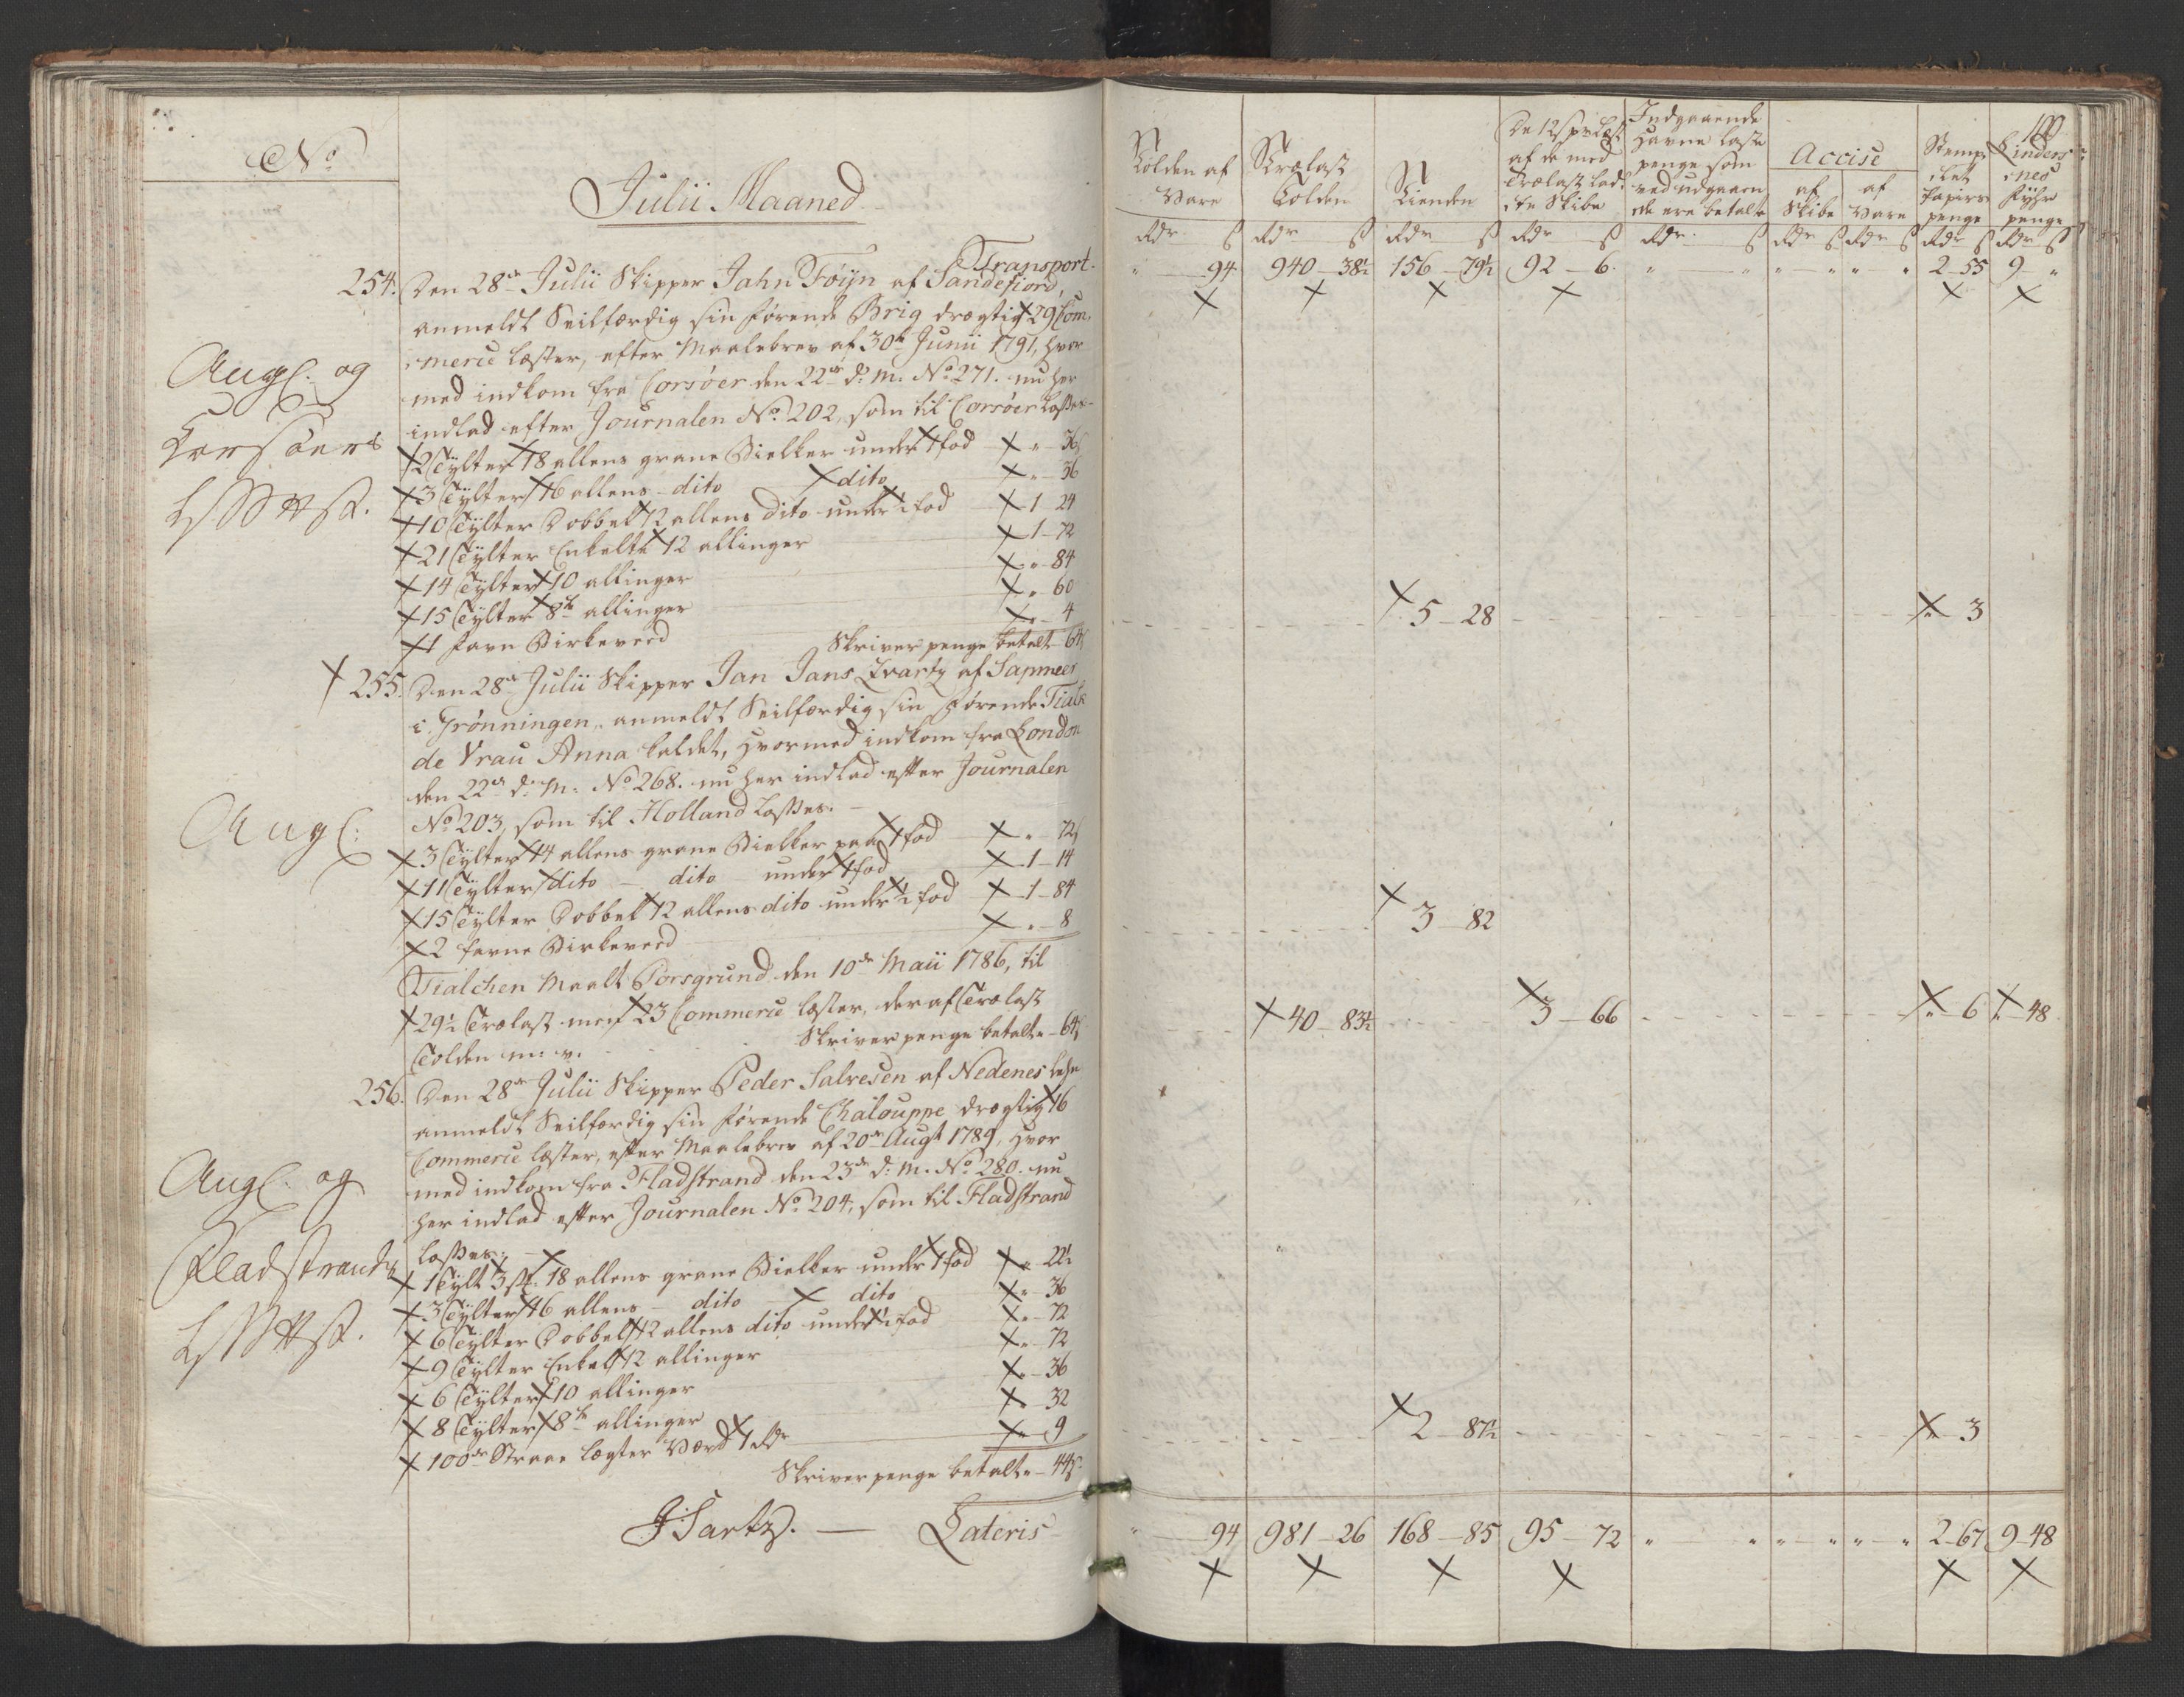 No
Julii Maaned
Transport.
254. Den 28de Julii Skipper Jahn Föijn af Sandefiord,
anmeldt Seilfærdig sin førende Brig drægtig 29 Com-
mercie læster, efter Maalebrev af 30te Junii 1791, hvor
med indkom fra Corsöer den 22de d: M: No 271. nu her
indlad efter Journalen No 202, som til Corsöer losses-
2 Tylter 18 allens grane Bielker under 1 fod " 36
3 Tylter 16 allens - dito dito " - 36
10 Tylter Dobbel 12 allens dito under ½ fod 1 24
21 Tylter Enkelte 12 allinger 1 - 72
14 Tylter 10 allinger " - 84
15 Tylter 8te allinger " - 60
1 favn Birkeved " - 4
Skriver penge betalt 64ß
Angl. og
Corsöers
255. Den 28de Julii Skipper Jan Jans Zvartz af Sapmeer
i Grønningen, anmeldt Seilfærdig sin førende Tialk
de Vrau Anna kaldet, hvormed indkom fra London
den 22de d: M: No 268. nu her indlad efter Journalen
No 203, som til Holland losses. -
3 Tylter 14 allens grane Bielker paa 1 fod " - 72ß
11 Tylter dito - dito under 1 fod 1 - 14
15 Tylter Dobbel 12 allens dito under ½ fod 1 - 84
2 favne Birkeved " - 8
Tialchen Maalt Porsgrund den 10de Maii 1786, til
29½ Trælast men 23 Commercie læster, deraf Trælast
Tolden m: v. Skriver penge betalte - 64ß
Angl:
256. Den 28de Julii Skipper Peder Salvesen af Nedenes Lehn
anmeldt Seilfærdig sin førende Chalouppe drægtig 16
Commercie læster, efter Maalebrev af 20de Augt 1789, hvor
med indkom fra Fladstrand den 23de d: M. No 280. nu
her indlad efter Journalen No 204, som til Fladstrand
losses: -
1 Tylt 3 st: 18 allens grane Bielker under 1 fod " 22½
3 Tylter 16 allens - dito dito " - 36
6 Tylter Dobbelt 12 allens dito under ½ fod " - 72
9 Tylter Enkelt 12 allinger " - 72
6 Tylter 10 allinger " - 36
8 Tylter 8te allinger " 32
100de Straae lægter Værd 1 Rdr " 9
Skriver penge betalte - 44ß.
Angl. og
Fladstrands
Lateris
Tolden af Vare
Trælast Tolden
Tienden
De 12ß pr Læst af de med Trælast lad- de Skibe
Indgaaende Havne Laste penge som ved udgaaen- de ere betalte
Accise
af Skibe
af Vare
Stemp- let Papirs penge
100
Linders- nes Fyhr penge
Rdr ß Rdr ß Rdr ß Rdr ß Rdr ß Rdr ß Rdr ß Rdr ß Rdr ß
" 94 940 - 38½ 156 - 79½ 92 - 6. " " " " " " 2 - 55 9 "
5 - 28 " 3
3 - 82
40 - 83½ 3 - 66 " 6 " - 48
2 - 87½ " 3
" 94 981 - 26 168 - 85 95 - 72 " " " " " " 2 - 67 9 - 48